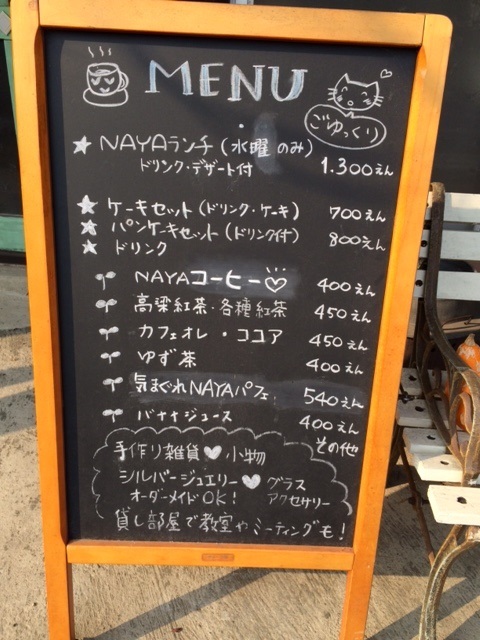 MENU
ごゆっくり
★ NAYAランチ (水曜 のみ)
ドリンク・デザート付 1.300えん
★ ケーキセット (ドリンク・ケーキ) 700えん
★ パンケーキセット (ドリンク付) 800えん
★ ドリンク
NAYAコーヒー♡ 400えん
高梁紅茶・各種紅茶 450えん
カフェオレ ・ ココア 450えん
ゆず茶 400えん
気まぐれNAYAパフェ 540えん
バナナジュース 400えん
その他
手作り雑貨♥小物
シルバージュエリー♥グラス
オーダーメイドOK! アクセサリー
貸し部屋で教室やミーティングも!